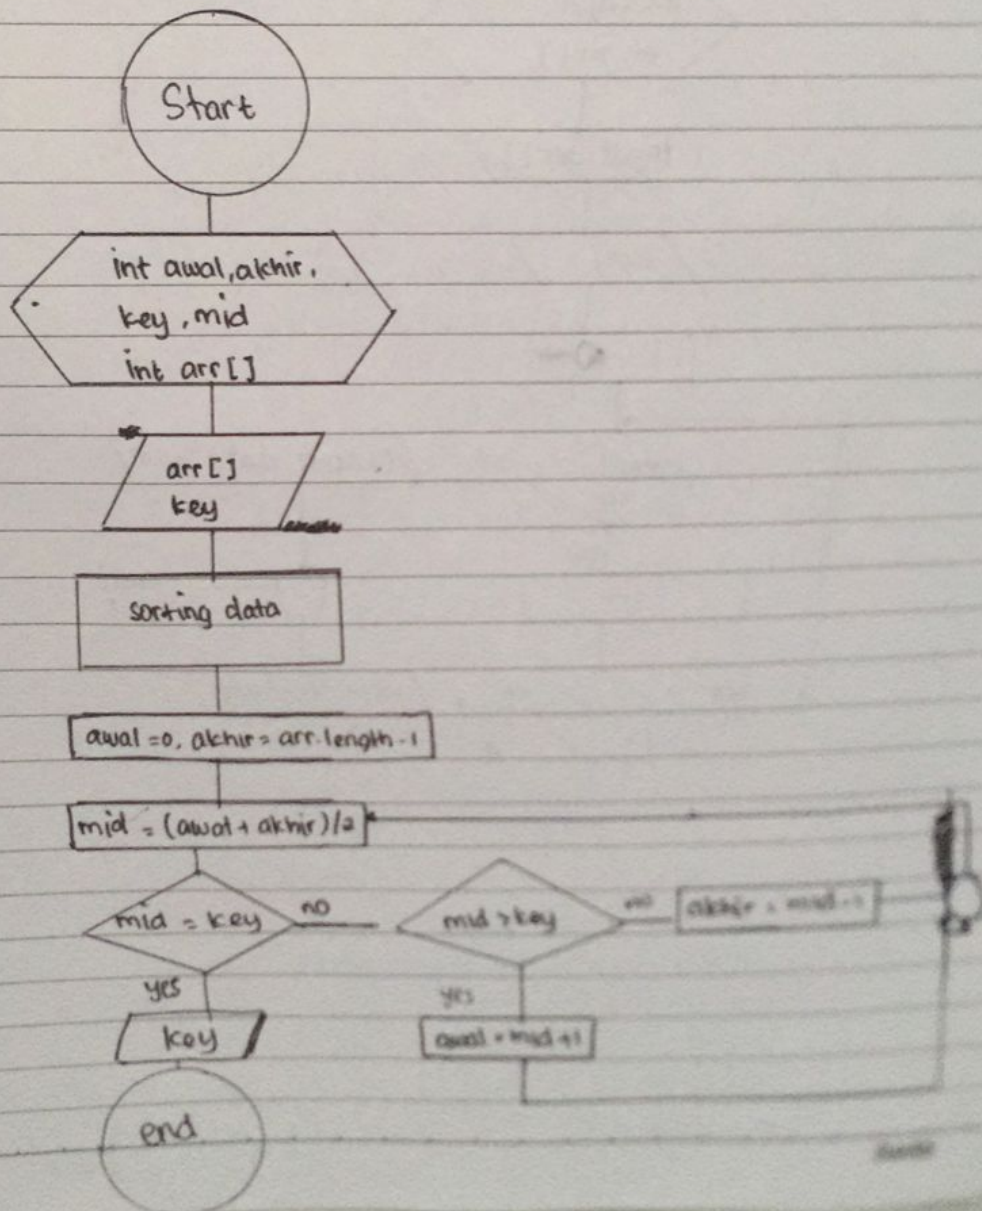 Start
int awal, akhir,
key, mid
int arr[]
arr[]
key
sorting data
awal = 0, akhir = arr.length - 1
mid = (awal + akhir)/2
mid = key
no
mid > key
no
akhir = mid - 1
yes
key
yes
awal = mid + 1
end